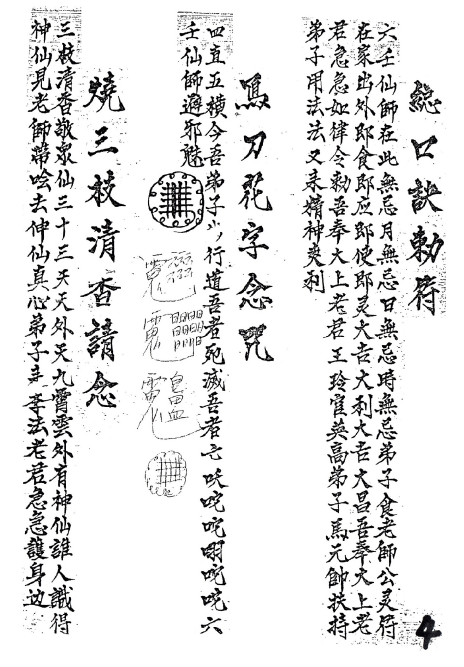 總口訣勅符
六壬仙師在此無忌月無忌日無忌時無忌弟子食老師公灵符
在家出外即食即应即使即灵大吉大利大吉大昌吾奉大上老
君急急如律令勅吾奉大上老君王玲官英高弟子馬元帥扶持
弟子用法法又来精神爽利
馬刀花字念咒
四直五橫今吾弟子行道吾者死滅吾者亡吠咜咜唎咜咜六
壬仙師避邪魅
燒三枝清香請念
三枝清香敬泉仙三十三天天外天九霄雲外有神仙誰人識得
神仙見老師帶唸去仲仙真心弟子来李法老君急急護身边
4